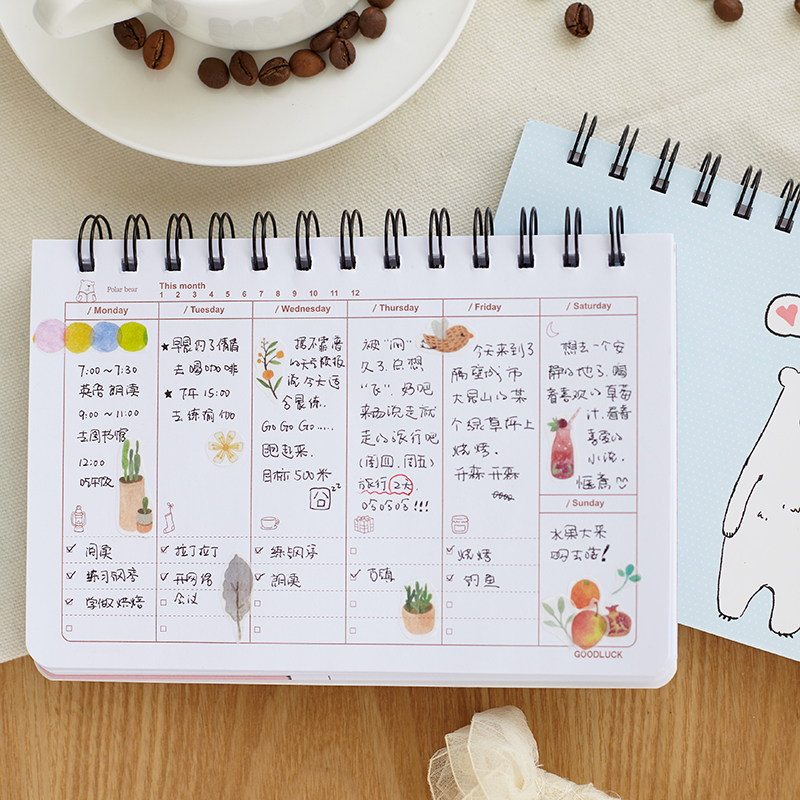 Polar bear
This month
1 2 3 4 5 6 7 8 9 10 11 12
/ Monday
7:00～7:30
英语朗读
9:00～11:00
去图书馆
12:00
吃午饭
阅读
练习钢琴
学做烘焙
/ Tuesday
早晨约了倩倩
去喝咖啡
下午 15:00
去练瑜伽
拉丁拉丁
开网络
会议
/ Wednesday
据不靠
的天气预报
说今天适
合晨练.
GO GO GO……
跑起来.
目标 500米
练钢琴
朗读
/ Thursday
被“闷”
久了.总想
“飞”. 好吧
来场说走就
走的旅行吧
(周四.周五)
旅行 2天
哈哈哈!!!
古镇
/ Friday
今天来到了
隔壁城市
大昆山的某
个绿草坪上
烧烤.
开森开森
烧烤
钓鱼
/ Saturday
想去一个安
静的地方.喝
着喜欢的草莓
汁.看着
喜爱的
小说.
惬意
/ Sunday
水果大采
购去咯!
GOODLUCK